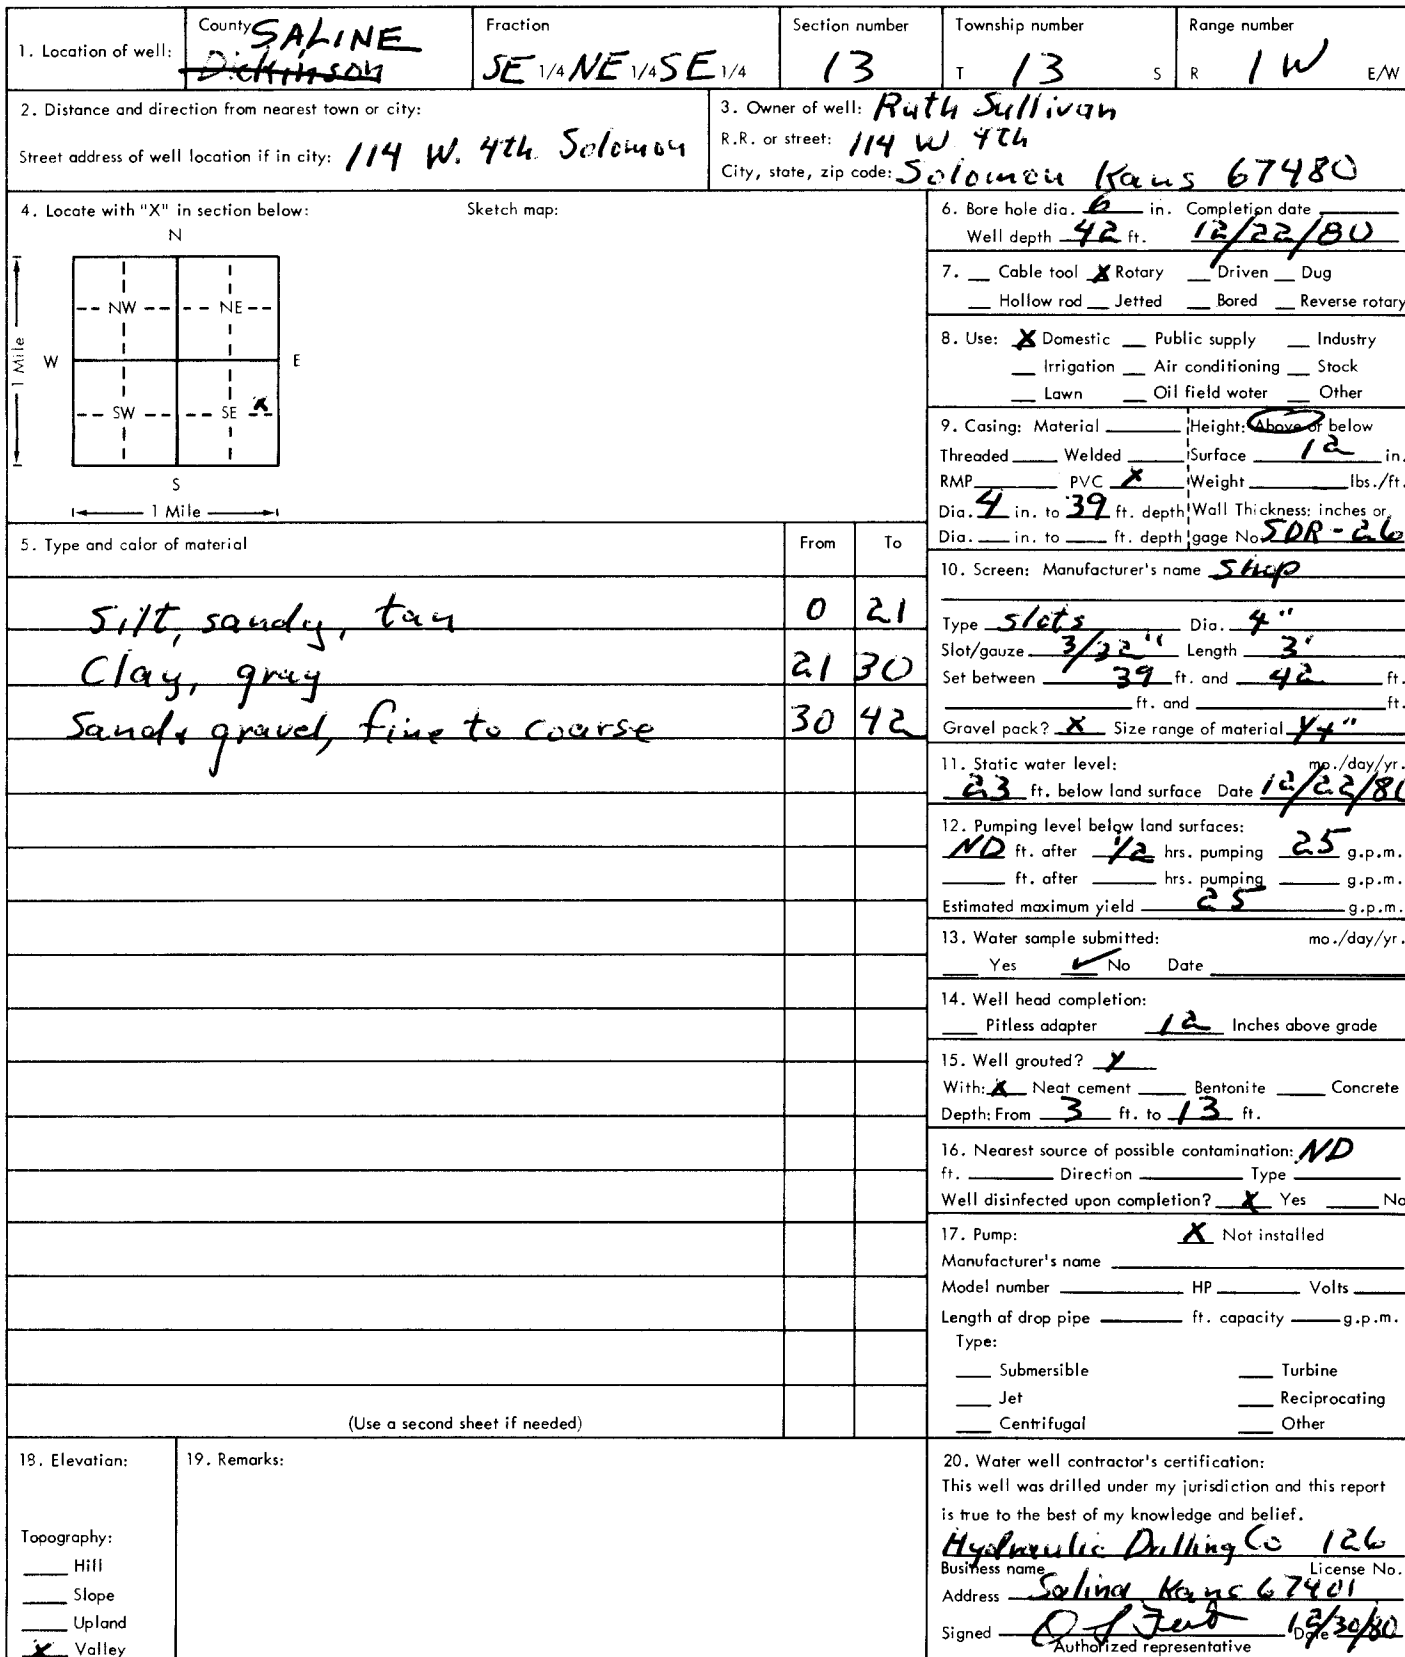 1. Location of well:
County SALINE
Dickinson
Fraction
SE 1/4 NE 1/4 SE 1/4
Section number
13
Township number
T 13 S
Range number
R 1 W E/W
2. Distance and direction from nearest town or city:
Street address of well location if in city: 114 W. 4th Solomon
3. Owner of well: Ruth Sullivan
R.R. or street: 114 W 4th
City, state, zip code: Solomon Kans 67480
4. Locate with "X" in section below: Sketch map:
N
NW NE
W E
1 Mile
SW SE X
S
1 Mile
5. Type and color of material From To
Silt, sandy, tan 0 21
Clay, gray 21 30
Sand & gravel, fine to coarse 30 42
(Use a second sheet if needed)
6. Bore hole dia. 6 in. Completion date
Well depth 42 ft. 12/22/80
7. __ Cable tool X Rotary __ Driven __ Dug
__ Hollow rod __ Jetted __ Bored __ Reverse rotary
8. Use: X Domestic __ Public supply __ Industry
__ Irrigation __ Air conditioning __ Stock
__ Lawn __ Oil field water __ Other
9. Casing: Material ____ Height: Above or below
Threaded ____ Welded ____ Surface 12 in.
RMP ____ PVC X Weight ____ lbs./ft.
Dia. 4 in. to 39 ft. depth Wall Thickness: inches or
Dia. __ in. to __ ft. depth gage No. SDR-26
10. Screen: Manufacturer's name Shop
Type slots Dia. 4"
Slot/gauze 3/32" Length 3'
Set between 39 ft. and 42 ft.
____ ft. and ____ ft.
Gravel pack? X Size range of material 1/4"
11. Static water level: mo./day/yr.
23 ft. below land surface Date 12/22/80
12. Pumping level below land surfaces:
ND ft. after 1/2 hrs. pumping 25 g.p.m.
____ ft. after ____ hrs. pumping ____ g.p.m.
Estimated maximum yield 25 g.p.m.
13. Water sample submitted: mo./day/yr.
__ Yes ✓ No Date ____
14. Well head completion:
__ Pitless adapter 12 Inches above grade
15. Well grouted? Y
With: X Neat cement ____ Bentonite ____ Concrete
Depth: From 3 ft. to 13 ft.
16. Nearest source of possible contamination: ND
ft. ____ Direction ____ Type ____
Well disinfected upon completion? X Yes ____ No
17. Pump: X Not installed
Manufacturer's name ____
Model number ____ HP ____ Volts ____
Length of drop pipe ____ ft. capacity ____ g.p.m.
Type:
__ Submersible __ Turbine
__ Jet __ Reciprocating
__ Centrifugal __ Other
18. Elevation:
Topography:
__ Hill
__ Slope
__ Upland
X Valley
19. Remarks:
20. Water well contractor's certification:
This well was drilled under my jurisdiction and this report
is true to the best of my knowledge and belief.
Hydraulic Drilling Co 126
Business name License No.
Address Salina Kans 67401
Signed Date 12/30/80
Authorized representative